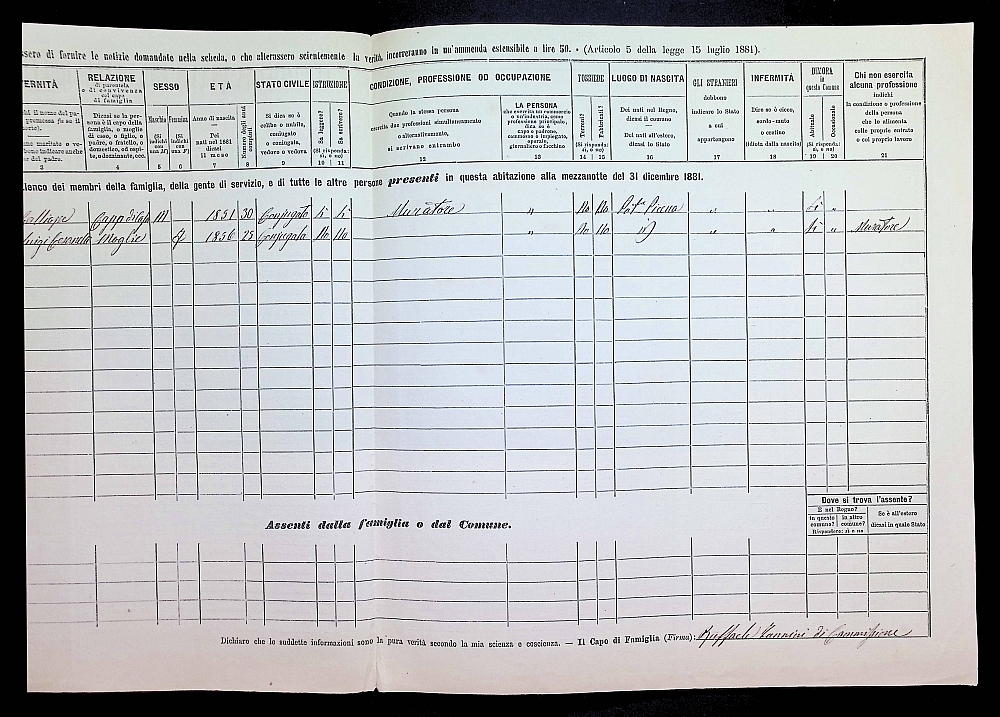 ssero di fornire le notizie domandate nella scheda, o che alterassero scientemente la verità, incorreranno in un'ammenda estensibile a lire 50. - (Articolo 5 della legge 15 luglio 1881).
ERNITÀ
RELAZIONE
di parentela
o di convivenza
col capo
di famiglia
SESSO
ETÀ
STATO CIVILE
ISTRUZIONE
CONDIZIONE, PROFESSIONE OD OCCUPAZIONE
POSSIEDE
LUOGO DI NASCITA
GLI STRANIERI
debbono
indicare lo Stato
a cui
appartengono
INFERMITÀ
DIMORA
in
questo Comune
Chi non esercita
alcuna professione
indichi
la condizione o professione
della persona
che lo alimenta
colle proprie entrate
o col proprio lavoro
Dicasi se la persona è il capo della
famiglia, o moglie
di esso, o figlio, o
padre, o fratello, o
domestico, od ospite, o dozzinante, ecc.
Maschio
(Si
indichi
con
una M)
Femmina
(Si
indichi
con
una F)
Anno di nascita
—
Pei
nati nel 1881
dicasi
il mese
Numero degli anni
compiuti
Si dica se è
celibe o nubile,
coniugato
o coniugata,
vedovo o vedova
Sa leggere?
Sa scrivere?
(Si risponda:
sì, o no)
Quando la stessa persona
esercita due professioni simultaneamente
o alternativamente,
si scrivano entrambe
LA PERSONA
che esercita un commercio
o un'industria, come
professione principale,
dica se è
capo o padrone,
commesso o impiegato,
operaio,
giornaliero o facchino
Terreni?
Fabbricati?
(Si risponda:
sì, o no)
Dei nati nel Regno,
dicasi il comune
—
Dei nati all'estero,
dicasi lo Stato
Dire se è cieco,
sordo-muto
o cretino
(idiota dalla nascita)
Abituale
Occasionale
(Si risponda:
sì, o no)
3 4 5 6 7 8 9 10 11 12 13 14 15 16 17 18 19 20 21
lenco dei membri della famiglia, della gente di servizio, e di tutte le altre persone presenti in questa abitazione alla mezzanotte del 31 dicembre 1881.
M 1851 30 Conjugato Si Si Muratore " No No " " Si "
Moglie F 1856 25 Conjugata No No " No No " " Si " Muratore
Assenti dalla famiglia o dal Comune.
Dove si trova l'assente?
È nel Regno?
in questo
comune?
in altro
comune?
Rispondere: sì o no
Se è all'estero
dicasi in quale Stato
Dichiaro che le suddette informazioni sono la pura verità secondo la mia scienza e coscienza. — Il Capo di Famiglia (Firma): Raffaele Vannini di Commissione